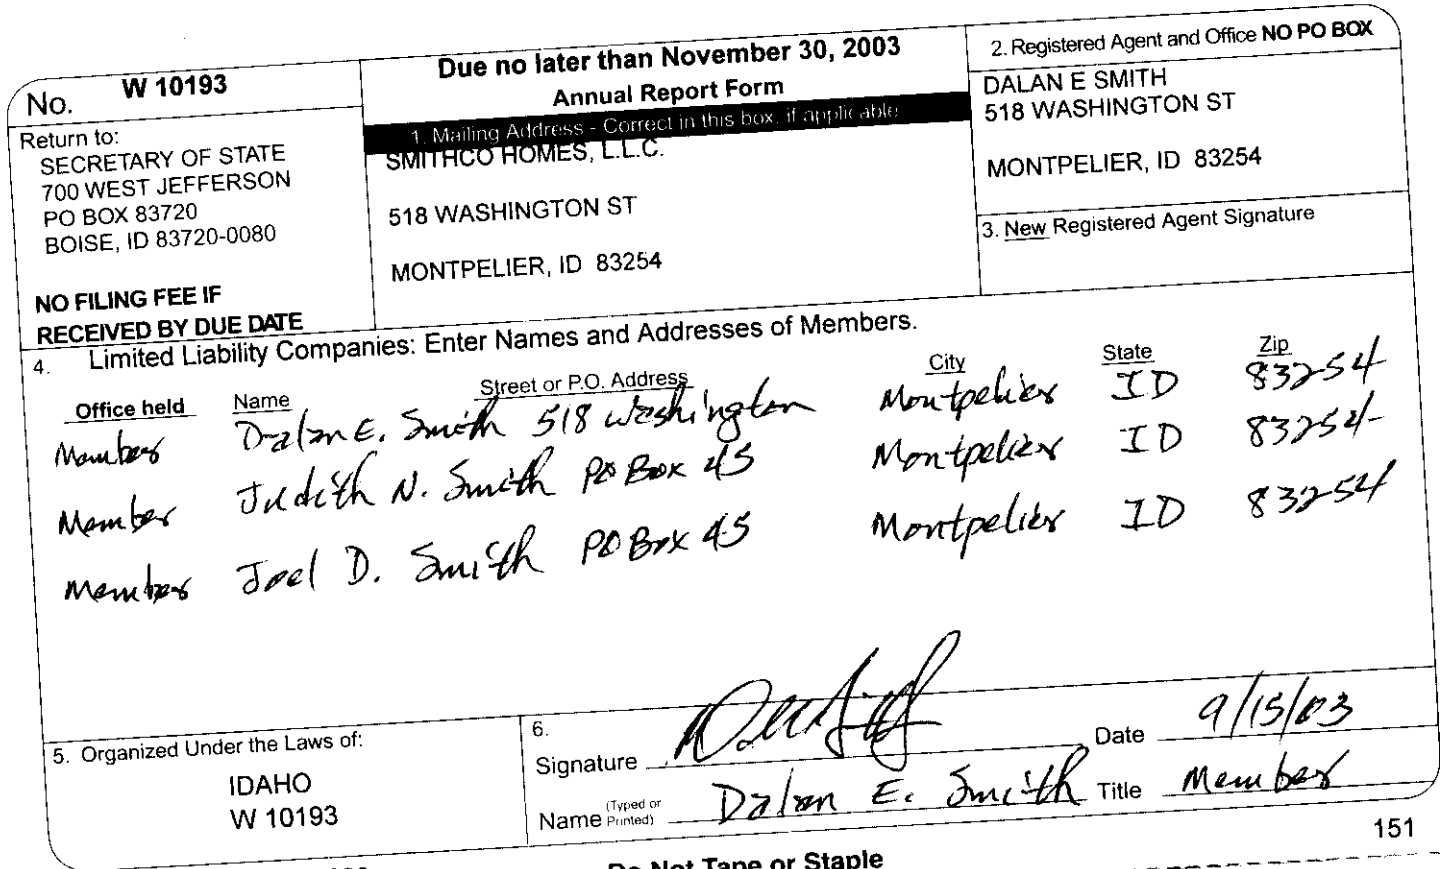 No. W 10193
Return to:
SECRETARY OF STATE
700 WEST JEFFERSON
PO BOX 83720
BOISE, ID 83720-0080
NO FILING FEE IF
RECEIVED BY DUE DATE
Due no later than November 30, 2003
Annual Report Form
1. Mailing Address - Correct in this box, if applicable
SMITHCO HOMES, L.L.C.
518 WASHINGTON ST
MONTPELIER, ID 83254
2. Registered Agent and Office NO PO BOX
DALAN E SMITH
518 WASHINGTON ST
MONTPELIER, ID 83254
3. New Registered Agent Signature
4. Limited Liability Companies: Enter Names and Addresses of Members.
Office held Name Street or P.O. Address City State Zip
Member Dalan E. Smith 518 Washington Montpelier ID 83254
Member Judith N. Smith PO Box 45 Montpelier ID 83254
Member Joel D. Smith PO Box 45 Montpelier ID 83254
5. Organized Under the Laws of:
IDAHO
W 10193
6.
Signature Date 9/15/03
Name (Typed or Printed) Dalan E. Smith Title Member
151
Do Not Tape or Staple